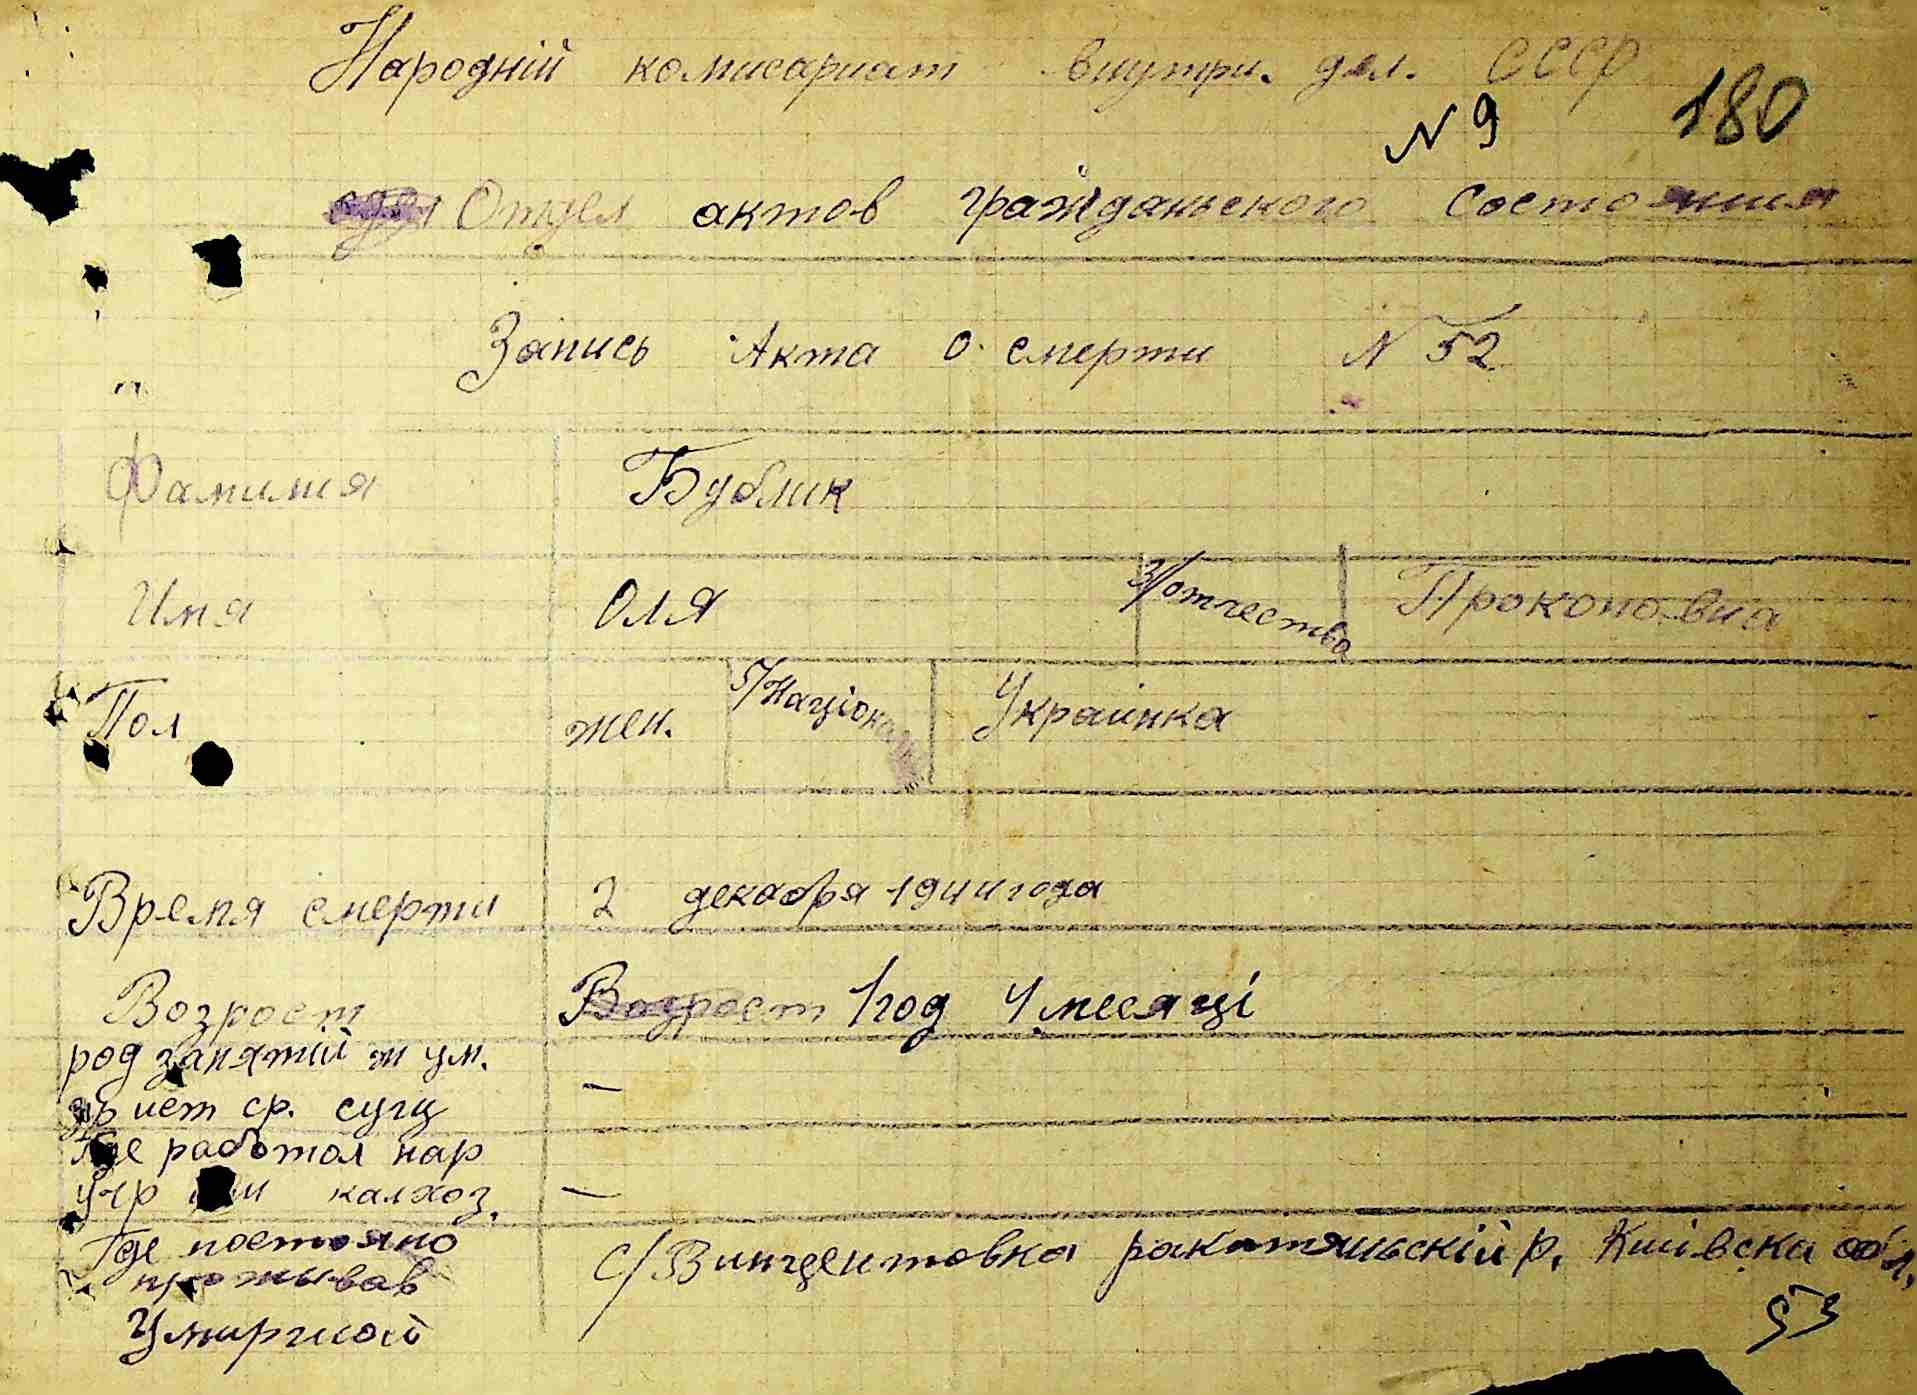 Народній комисариат внутри. дел. СССР
N 9 180
Отдел актов гражданьского состояния
Запись Акта о смерти N 52
Фамилия Бублик
Имя Оля 3/отчество Прокоповна
Пол жен. 5/Націонал Украинка
Время смерти 2 декабря 1944 года
Возрост Возрост 1 год 4 месяці
род занятій
ист ср. сущ –
Где работол нар
учр или калхоз. –
Где постояно с/Винцентовка ракитяньскій р. Киівска обл.
проживав
Умиршой 53